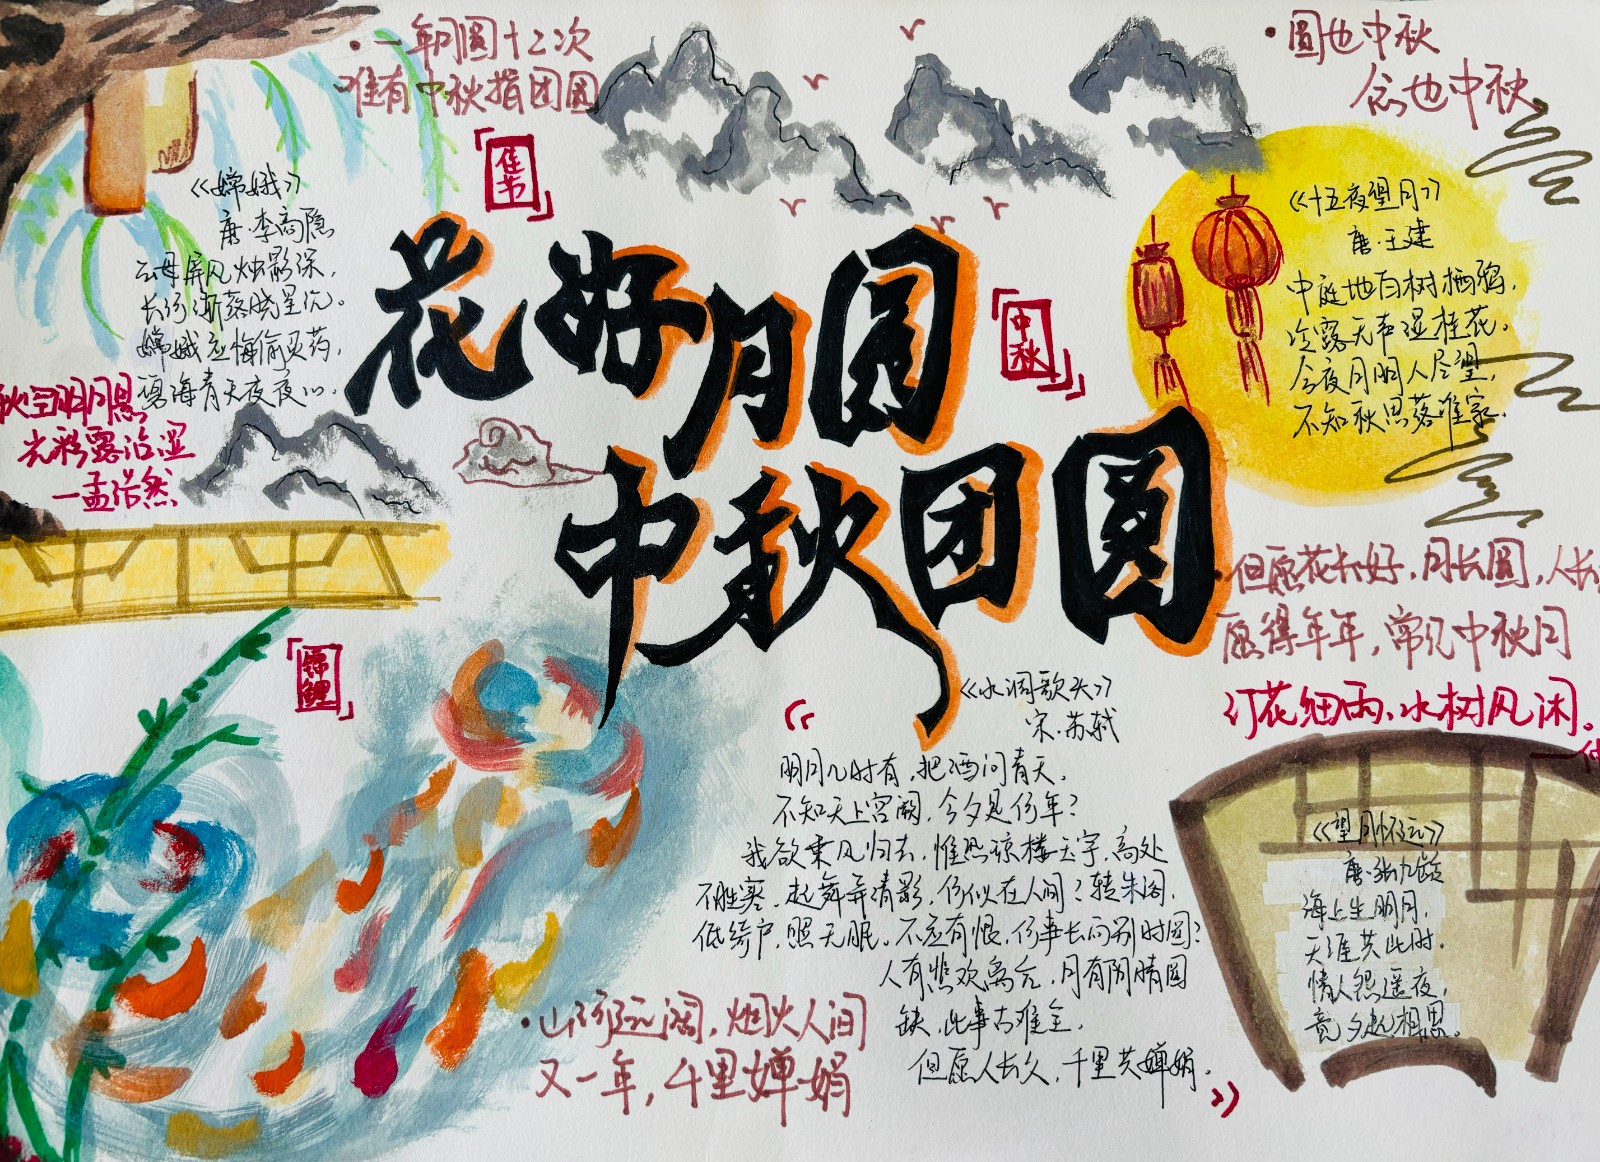 ·一年月圆十二次
唯有中秋指团圆
·圆也中秋
念也中秋
佳节
《嫦娥》
唐·李商隐
云母屏风烛影深,
长河渐落晓星沉。
嫦娥应悔偷灵药,
碧海青天夜夜心。
秋空明月悬
光彩露沾湿
一孟浩然
花好月圆
中秋
中秋团圆
《十五夜望月》
唐·王建
中庭地白树栖鸦,
冷露无声湿桂花。
今夜月明人尽望,
不知秋思落谁家。
·但愿花长好,月长圆,人长
愿得年年,常见中秋月
汀花细雨,水树风闲。
锦鲤
《水调歌头》
宋·苏轼
明月几时有,把酒问青天,
不知天上宫阙,今夕是何年?
我欲乘风归去,惟恐琼楼玉宇,高处
不胜寒,起舞弄清影,何似在人间?转朱阁,
低绮户,照无眠。不应有恨,何事长向别时圆?
人有悲欢离合,月有阴晴圆
缺,此事古难全,
但愿人长久,千里共婵娟。
《望月怀远》
唐·张九龄
海上生明月,
天涯共此时。
情人怨遥夜,
竟夕起相思。
·山河远阔,烟火人间
又一年,千里婵娟